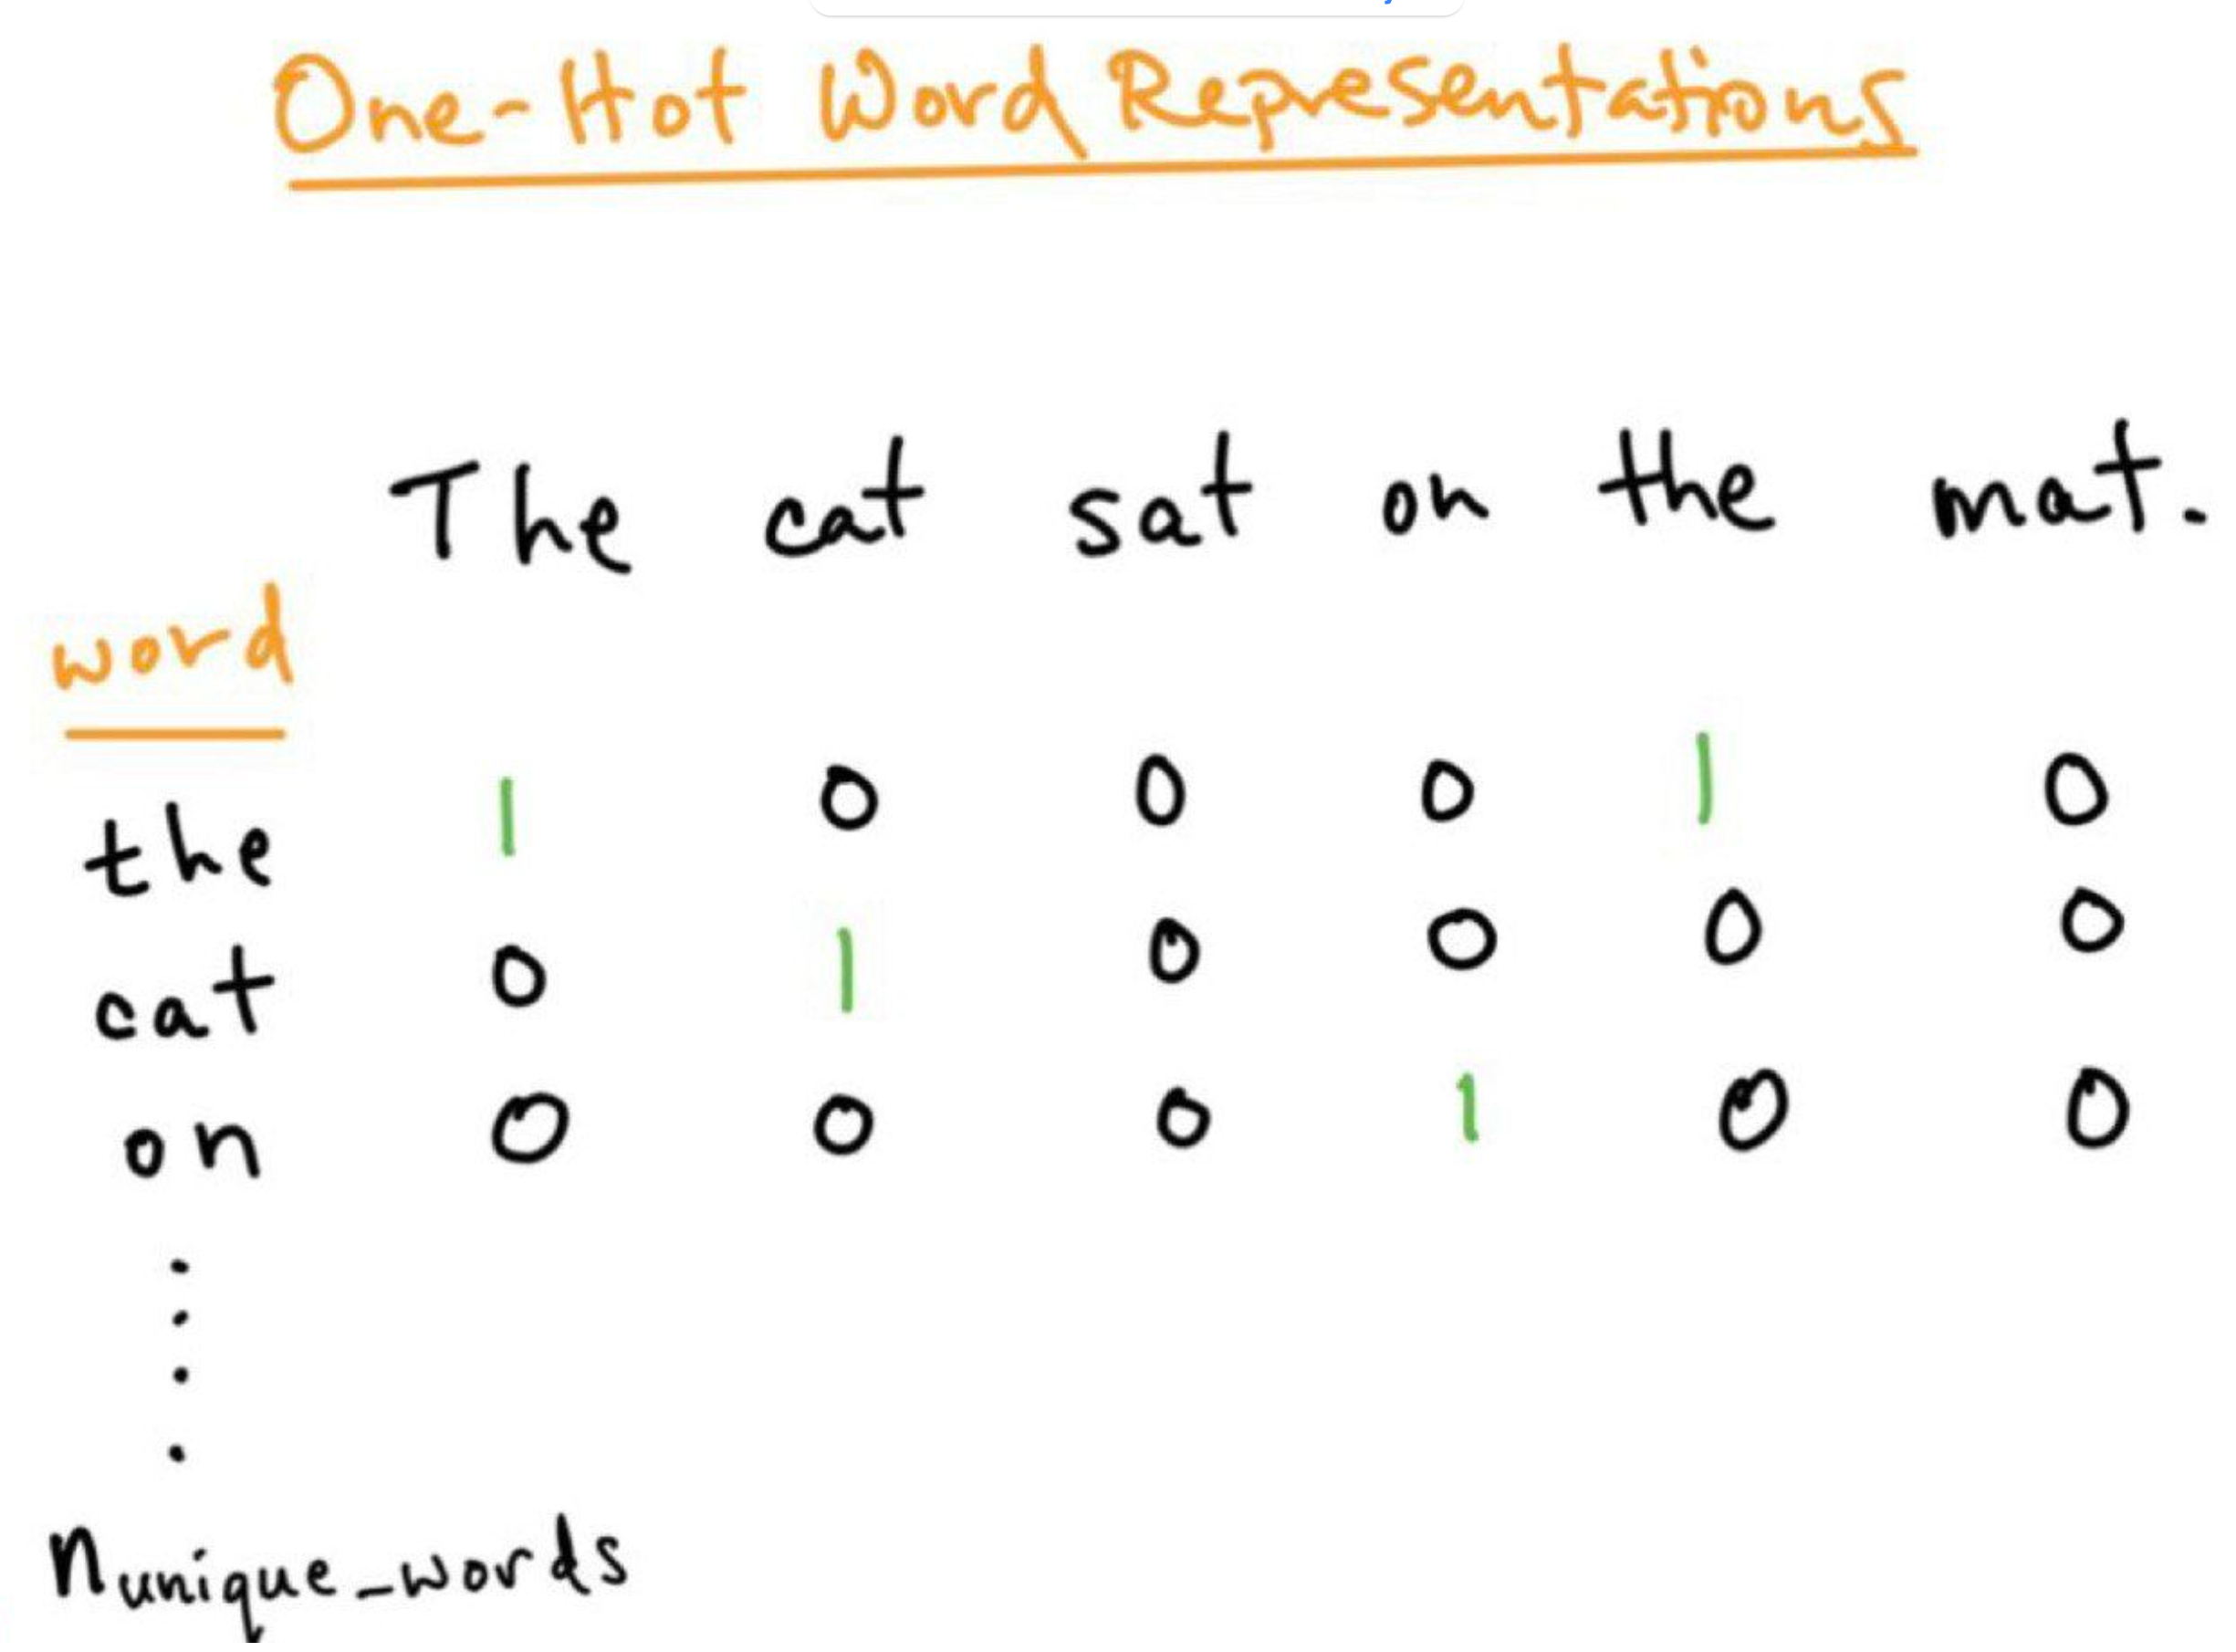 One-Hot Word Representations
The cat sat on the mat.
word
the 1 0 0 0 1 0
cat 0 1 0 0 0 0
on 0 0 0 1 0 0
.
.
.
.
nunique_words